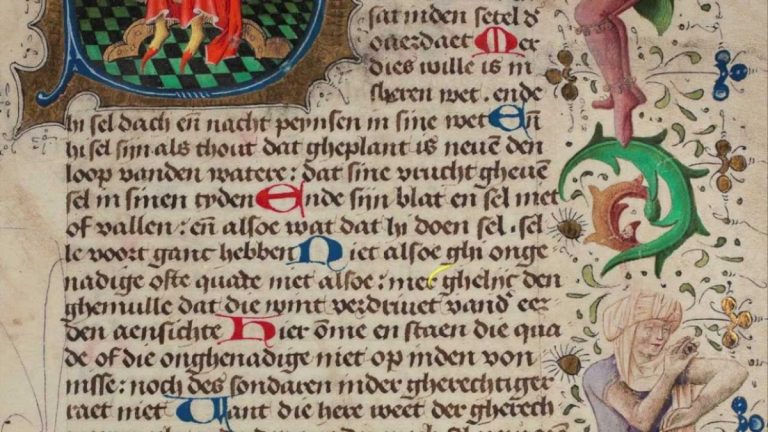 sat inden setel d̕
ouerdaet Mer
dies wille is in
sheren wet. ende
hi sel dach en̄ nacht peynsen in sine wet En̄
hi sel sijn als thout dat gheplant is neuen den
loop vanden watere: dat sine vrucht gheuen̄
sel in sinen tyden Ende sijn blat en sel niet
of vallen: en̄ alsoe wat dat hi doen sel. sel
le voort ganc hebben Niet alsoe ghi onge
nadige ofte quade niet alsoe: mer ghelijc den
ghemulle dat die wint verdriuet vand̕ eer
den aensichte Hier ōme en staen die qua
de of die onghenadige niet op inden von
nisse: noch des sondaren inder gherechtiger
raet niet Want die here weet der gherech